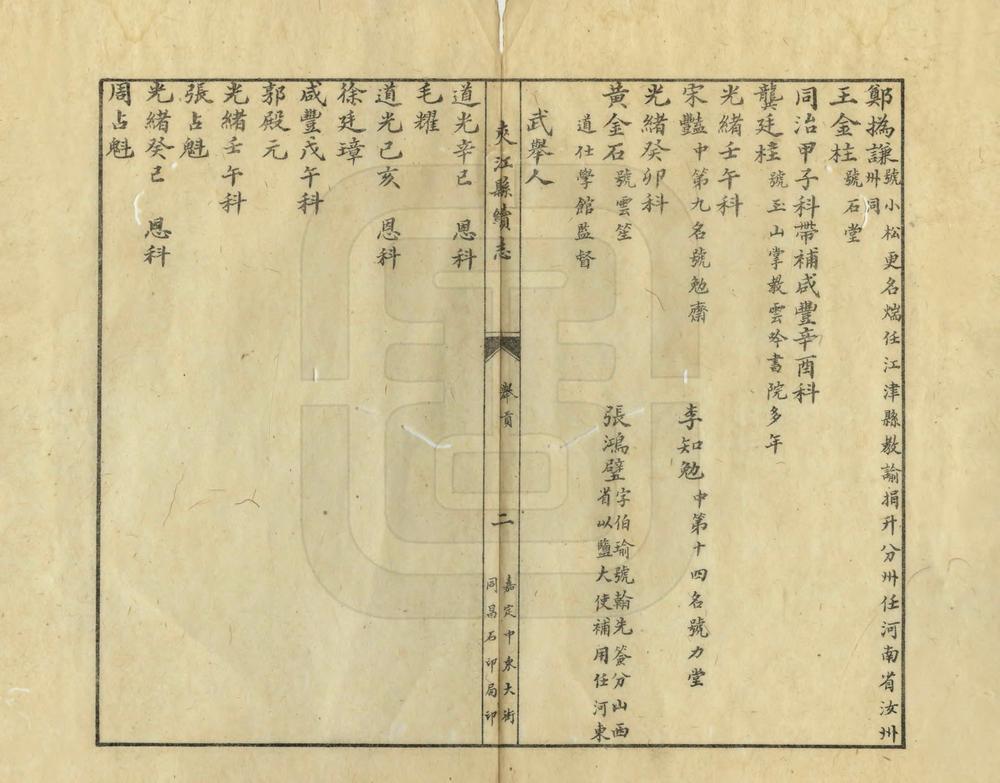 鄭撝謙號小松更名熴任江津縣敎諭捐升分州任河南省汝州
州同
王金桂號石堂
同治甲子科帶補咸豐辛酉科
龔廷桂號玉山掌教雲吟書院多年
光緒壬午科
宋豔中第九名號勉齋 李知勉中第十四名號力堂
光緒癸卯科
黃金石號雲笙 張鴻璧字伯瑜號翰先簽分山西
道仕學館監督 省以鹽大使補用任河東
武舉人
夾江縣續志 舉貢 二 嘉定中東大街
同昌石印局印
道光辛巳 恩科
毛耀
道光己亥 恩科
徐廷璋
咸豐戊午科
郭殿元
光緒壬午科
張占魁
光緒癸巳 恩科
周占魁